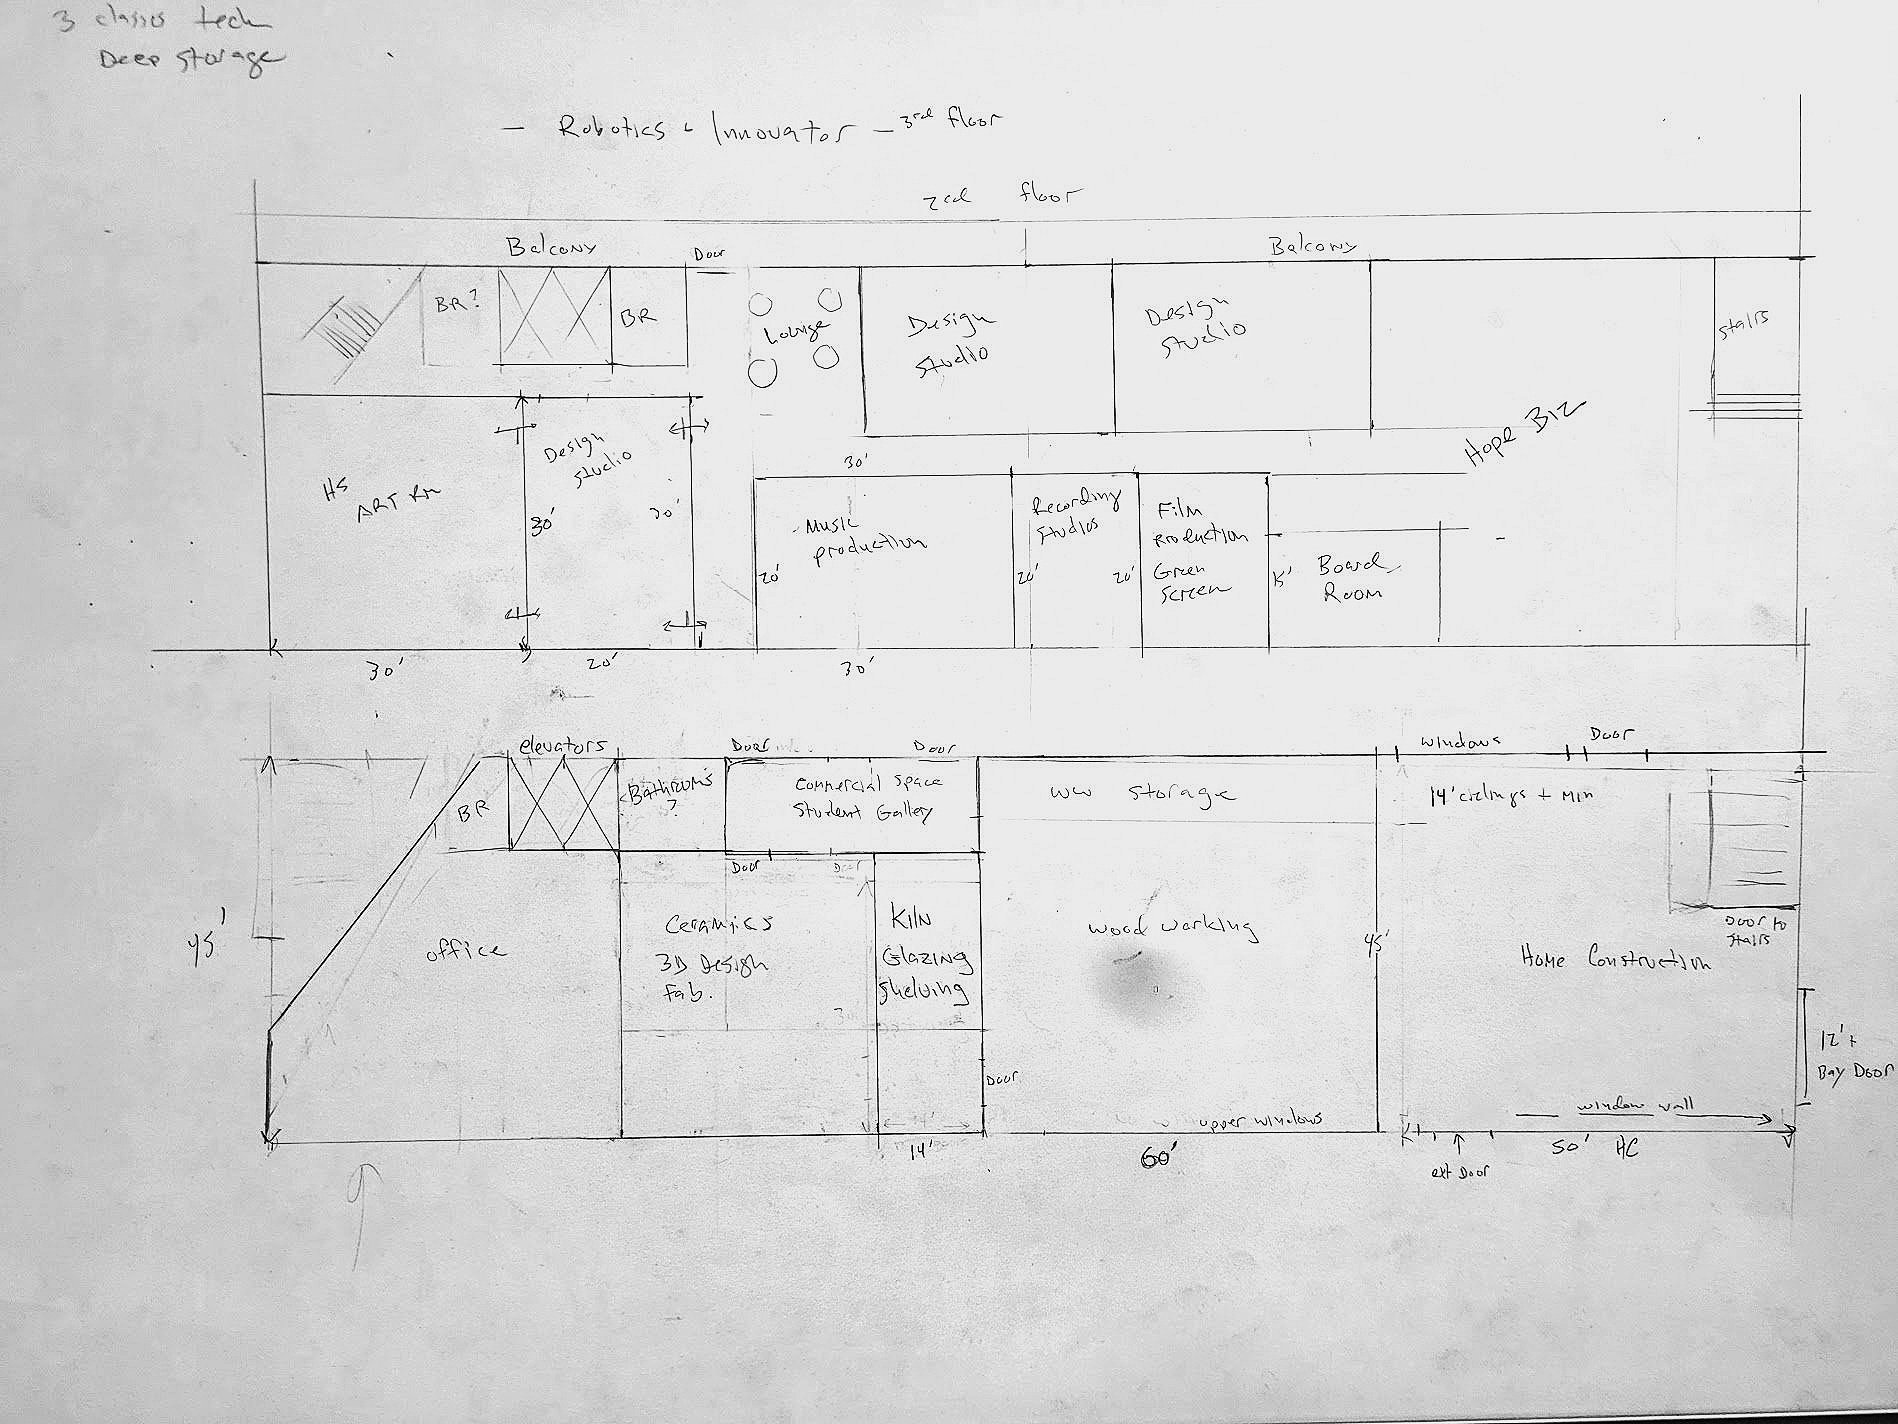 3 classes tech
Deep Storage
- Robotics & Innovator - 3rd floor
2nd floor
Balcony
Door
Balcony
BR?
BR
Lounge
Design
Studio
Design
Studio
Stairs
HS
ART RM
Design
Studio
30'
30'
Hope BIZ
30'
Music
production
20'
Recording
Studios
20'
20'
Film
Production
Green
Screen
15'
Board
Room
30'
20'
30'
elevators
Door
Door
windows
Door
BR
Bathrooms
?
Commercial Space
Student Gallery
WW Storage
14' cielings + Min
Door
Door
45'
office
Ceramics
3D Design
Fab.
Kiln
Glazing
Shelving
Wood working
45'
Home Construction
Door to
Stairs
12' +
Bay Door
Door
upper windows
window wall
14'
60'
ext Door
50' HC